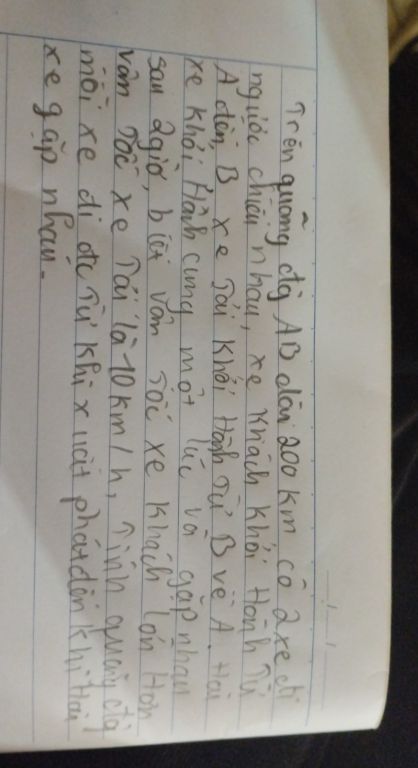 Trên quãng đg AB dài 200 km có 2 xe đi
ngược chiều nhau, xe khách khởi Hành Từ
A đến B xe Tải khởi Hành Từ B về A. Hai
xe khởi Hành cùng một lúc và gặp nhau
sau 2 giờ, biết vân Tốc xe khách lớn Hơn
vân Tốc xe Tải là 10 km/h, Tính quãng đg
mỗi xe đi đc Từ khi xuất phát đến khi Hai
xe gặp nhau.